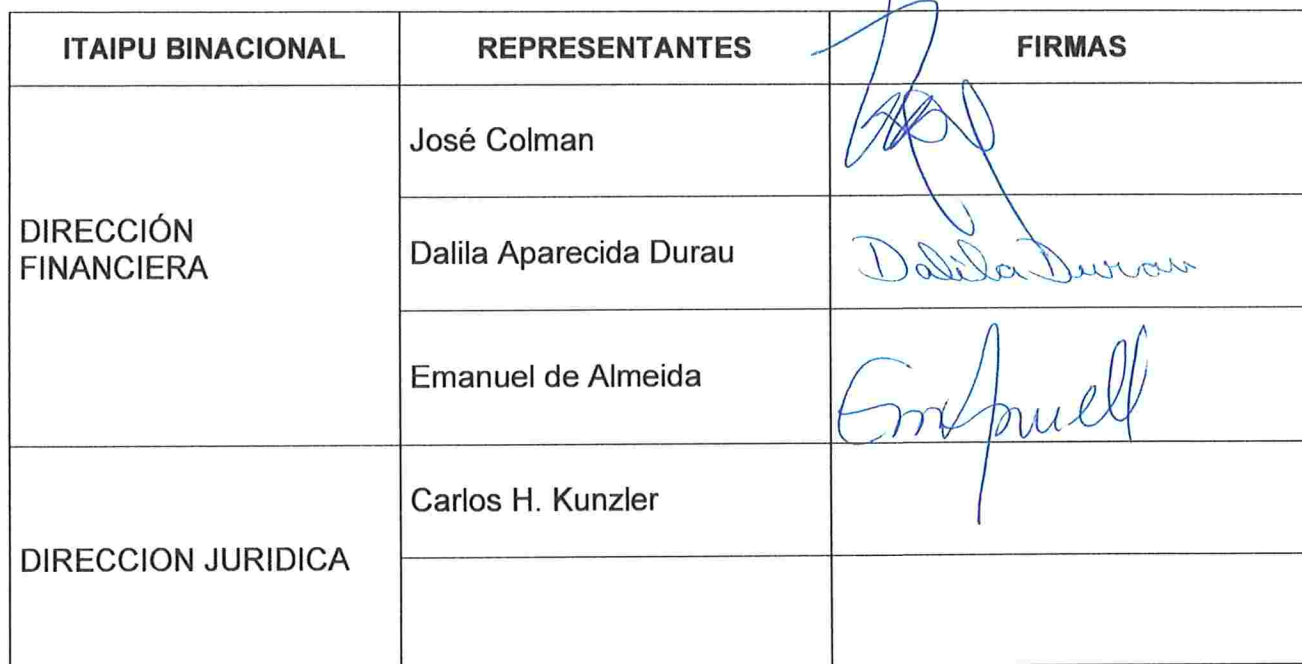 ITAIPU BINACIONAL REPRESENTANTES FIRMAS
DIRECCIÓN
FINANCIERA
José Colman
Dalila Aparecida Durau
Dalila Durau
Emanuel de Almeida
DIRECCION JURIDICA
Carlos H. Kunzler